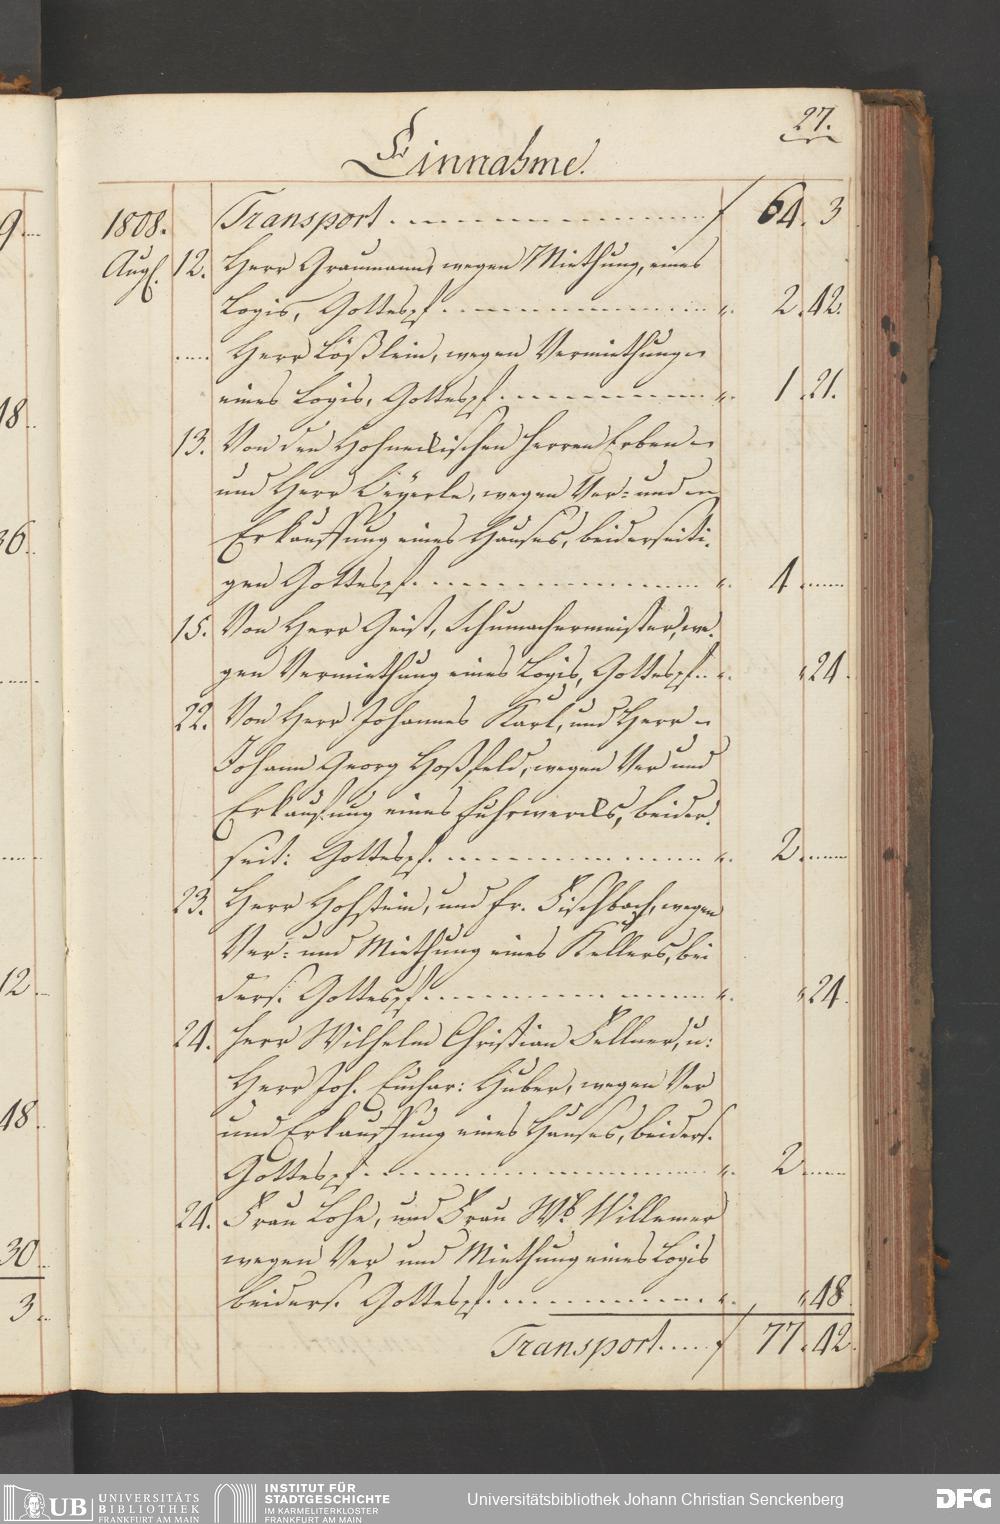 27.
Einnahme.
1808. Transport . . . . f 64. 3
Augst. 12. Herr Graumann, wegen Miethung, eines
Logis, Gottespf. . . . . „ 2. 42.
..... Herr Lößlein, wegen Vermiethung
eines Logis, Gottespf. . . . . „ 1. 21.
13. Von den Hohneckischen Herren Erben
und Herr Beyerle, wegen Ver= und
Erkauffung eines Hauses, beiderseiti-
gen Gottespf. . . . . „ 4. ....
15. Von Herr Geist, Schumachermeister, we-
gen Vermiethung eines Logis, Gottespf. . „ „ 24.
22. Von Herr Johannes Karl, und Herr
Johann Georg Hoßfeld, wegen Ver und
Erkaufung eines Fuhrwercks, beider-
seit: Gottespf. . . . . „ 2. ....
23. Herr Hohstein, und Fr. Fischbach, wegen
Ver= und Miethung eines Kellers, bei
ders. Gottespf. . . . . „ „ 24.
24. Herr Wilhelm Christian Fellner, u:
Herr Joh. Euchar: Huber, wegen Ver
und Erkauffung eines Hauses, beiders.
Gottespf. . . . . „ 2. ....
24. Frau Lohe, und Frau Wb. Willemer
wegen Ver und Miethung eines Logis
beiders. Gottespf. . . . . „ „ 48.
Transport . . . . f 77. 42.
9
18
36
12
48
30
3
UB UNIVERSITÄTS
BIBLIOTHEK
FRANKFURT AM MAIN
INSTITUT FÜR
STADTGESCHICHTE
IM KARMELITERKLOSTER
FRANKFURT AM MAIN
Universitätsbibliothek Johann Christian Senckenberg
DFG